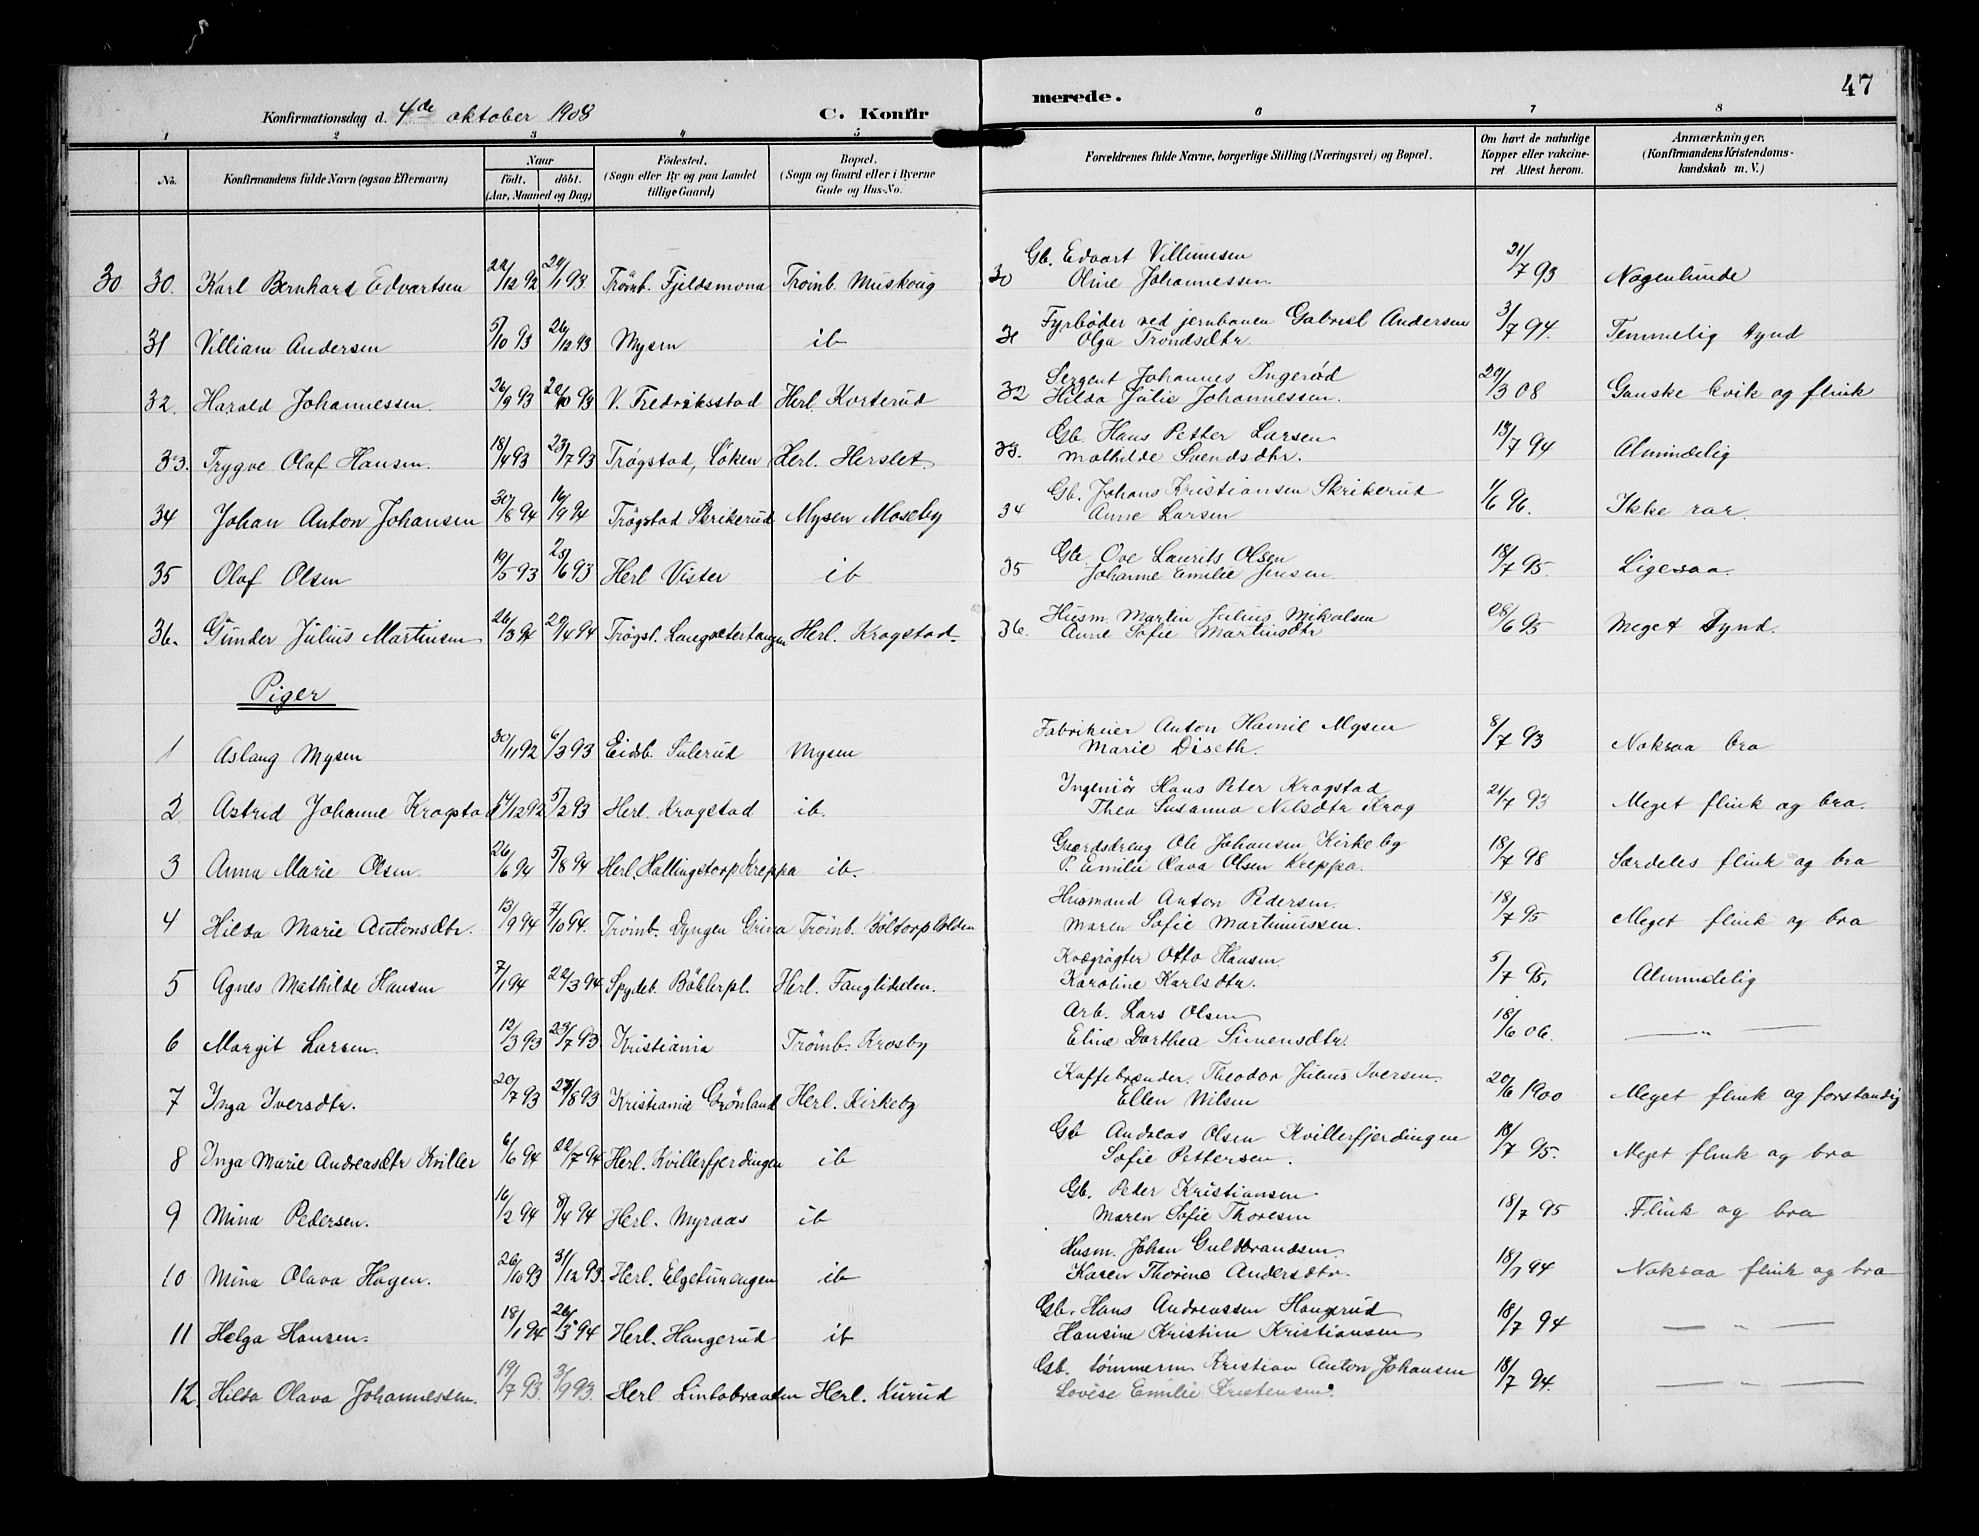 47
Konfirmationsdag d. 4de oktober 1908 C. Konfir merede.
1 2 3 4 5 6 7 8
No. Konfirmandens fulde Navn (ogsaa Efternavn) Naar født. døbt. (Aar, Maaned og Dag) Fødested. (Sogn eller By og paa Landet tillige Gaard) Bopæl. (Sogn og Gaard eller i Byerne Gade og Hus-No. Forældrenes fulde Navne, borgerlige Stilling (Næringsvei) og Bopæl. Om havt de naturlige Kopper eller vakcineret Attest herom. Anmærkninger. (Konfirmandens Kristendomskundskab m. V.)
30 30. Karl Bernhard Edvartsen 22/12 92 24/1 93 Trømb. Fjeldsmona Trømb. Muskoug 30 Gb. Edvart Villumsen
Oline Johannessen 21/7 93 Nogenlunde
31 Villiam Andersen 5/10 93 26/12 93 Mysen ib 31 Fyrbøder ved jernbanen Gabriel Andersen
Olga Trondsdtr. 3/7 94. Temmelig tynd
32. Harald Johannessen. 26/9 93 22/10 93 V. Fredriksstad Herl. Korterud 32 Sergent Johannes Ingerød
Hilda Julie Johannessen. 29/3 08 Ganske kvik og flink
33. Trygve Olaf Hansen. 18/4 93 23/7 93 Trøgstad, Løken Herl. Herslet 33. Gb. Hans Petter Larsen
Mathilde Svendsdtr. 13/7 94 Almindelig
34 Johan Anton Johansen 30/8 94 16/9 94 Trøgstad Skrikerud Mysen Moseby 34 Gb. Johans Kristiansen Skrikerud
Anne Larsen 1/6 96. Ikke rar.
35 Olaf Olsen 19/5 93 25/6 93 Herl Vister ib 35 Gb. Ove Laurits Olsen
Johanne Emilie Jensen. 18/7 95. Ligesaa.
36. Gunder Julius Martinsen 26/3 94 29/4 94 Trøgst. Langsæterhaugen Herl. Kragstad. 36. Husm. Martin Julius Mikalsen
Anne Sofie Martinsdtr 28/6 95 Meget tynd.
Piger
1 Aslaug Mysen 30/11 92 6/3 93 Eidsb. Sulerud Mysen Fabrikeier Anton Hamil Mysen
Marie Diseth. 8/7 93 Noksaa bra
2 Astrid Johanne Kragstad 14/12 92 5/2 93 Herl. Kragstad ib. Ingeniør Hans Peter Kragstad
Thea Susanna Nilsdtr Krog 21/7 93 Meget flink og bra.
3 Anna Marie Olsen. 26/6 94 5/8 94 Herl. Hallingstorp Kreppa ib. Gaardsdreng Ole Johansen Kirkeby
P. Emilie Olava Olsen Kreppa. 18/7 98 Særdeles flink og bra
4 Hilda Marie Antonsdtr. 13/9 94 7/10 94. Trømb. Dyngen Grina Trømb. Båltorp Holden Husmand Anton Pedersen.
Maren Sofie Martinussen. 18/7 95 Meget flink og bra
5 Agnes Mathilde Hansen 7/1 94 22/3 94 Spydeb. Bøhlerpl. Herl. Fanglidelen. Kvægrøgter Otto Hansen
Karoline Karlsdtr. 5/7 95. Almindelig
6 Margit Larsen. 12/3 93 23/7 93 Kristiania Trømb. Krosby Arb. Lars Olsen
Eline Dorthea Simensdtr. 18/6 06. — " —
7 Inga Iversdtr. 20/7 93 27/8 93 Kristiania Grønland Herl. Kirkeby Kaffebrænder. Theodor Julius Iversen.
Ellen Nilsen 20/6 1900 Meget flink og forstandig
8 Inga Marie Andreasdtr Kviller 6/6 94 22/7 94 Herl. Kvillerfjerdingen ib Gb Andreas Olsen Kvillerfjerdingen
Sofie Pettersen. 18/7 95. Meget flink og bra
9 Mina Pedersen. 16/2 94 8/4 94 Herl. Myraas ib Gb. Peder Kristiansen.
Maren Sofie Thoresen 18/7 95 Flink og bra
10 Mina Olava Hagen. 26/10 93 31/12 93. Herl. Elgetunengen ib Husm. Johan Guldbrandsen.
Karen Thorine Andersdtr. 18/7 94 Noksaa flink og bra
11 Helga Hansen. 18/1 94 26/3 94 Herl. Haugerud ib Gb. Hans Andreassen Haugerud
Hansine Kristine Kristiansen 18/7 94 — " —
12. Hilda Olava Johannessen. 19/7 93. 3/9 93. Herl Lintobraaten Herl. Kurud Gb. tømmerm Kristian Anton Johansen
Lovise Emilie Kristensen. 18/7 94. — " —